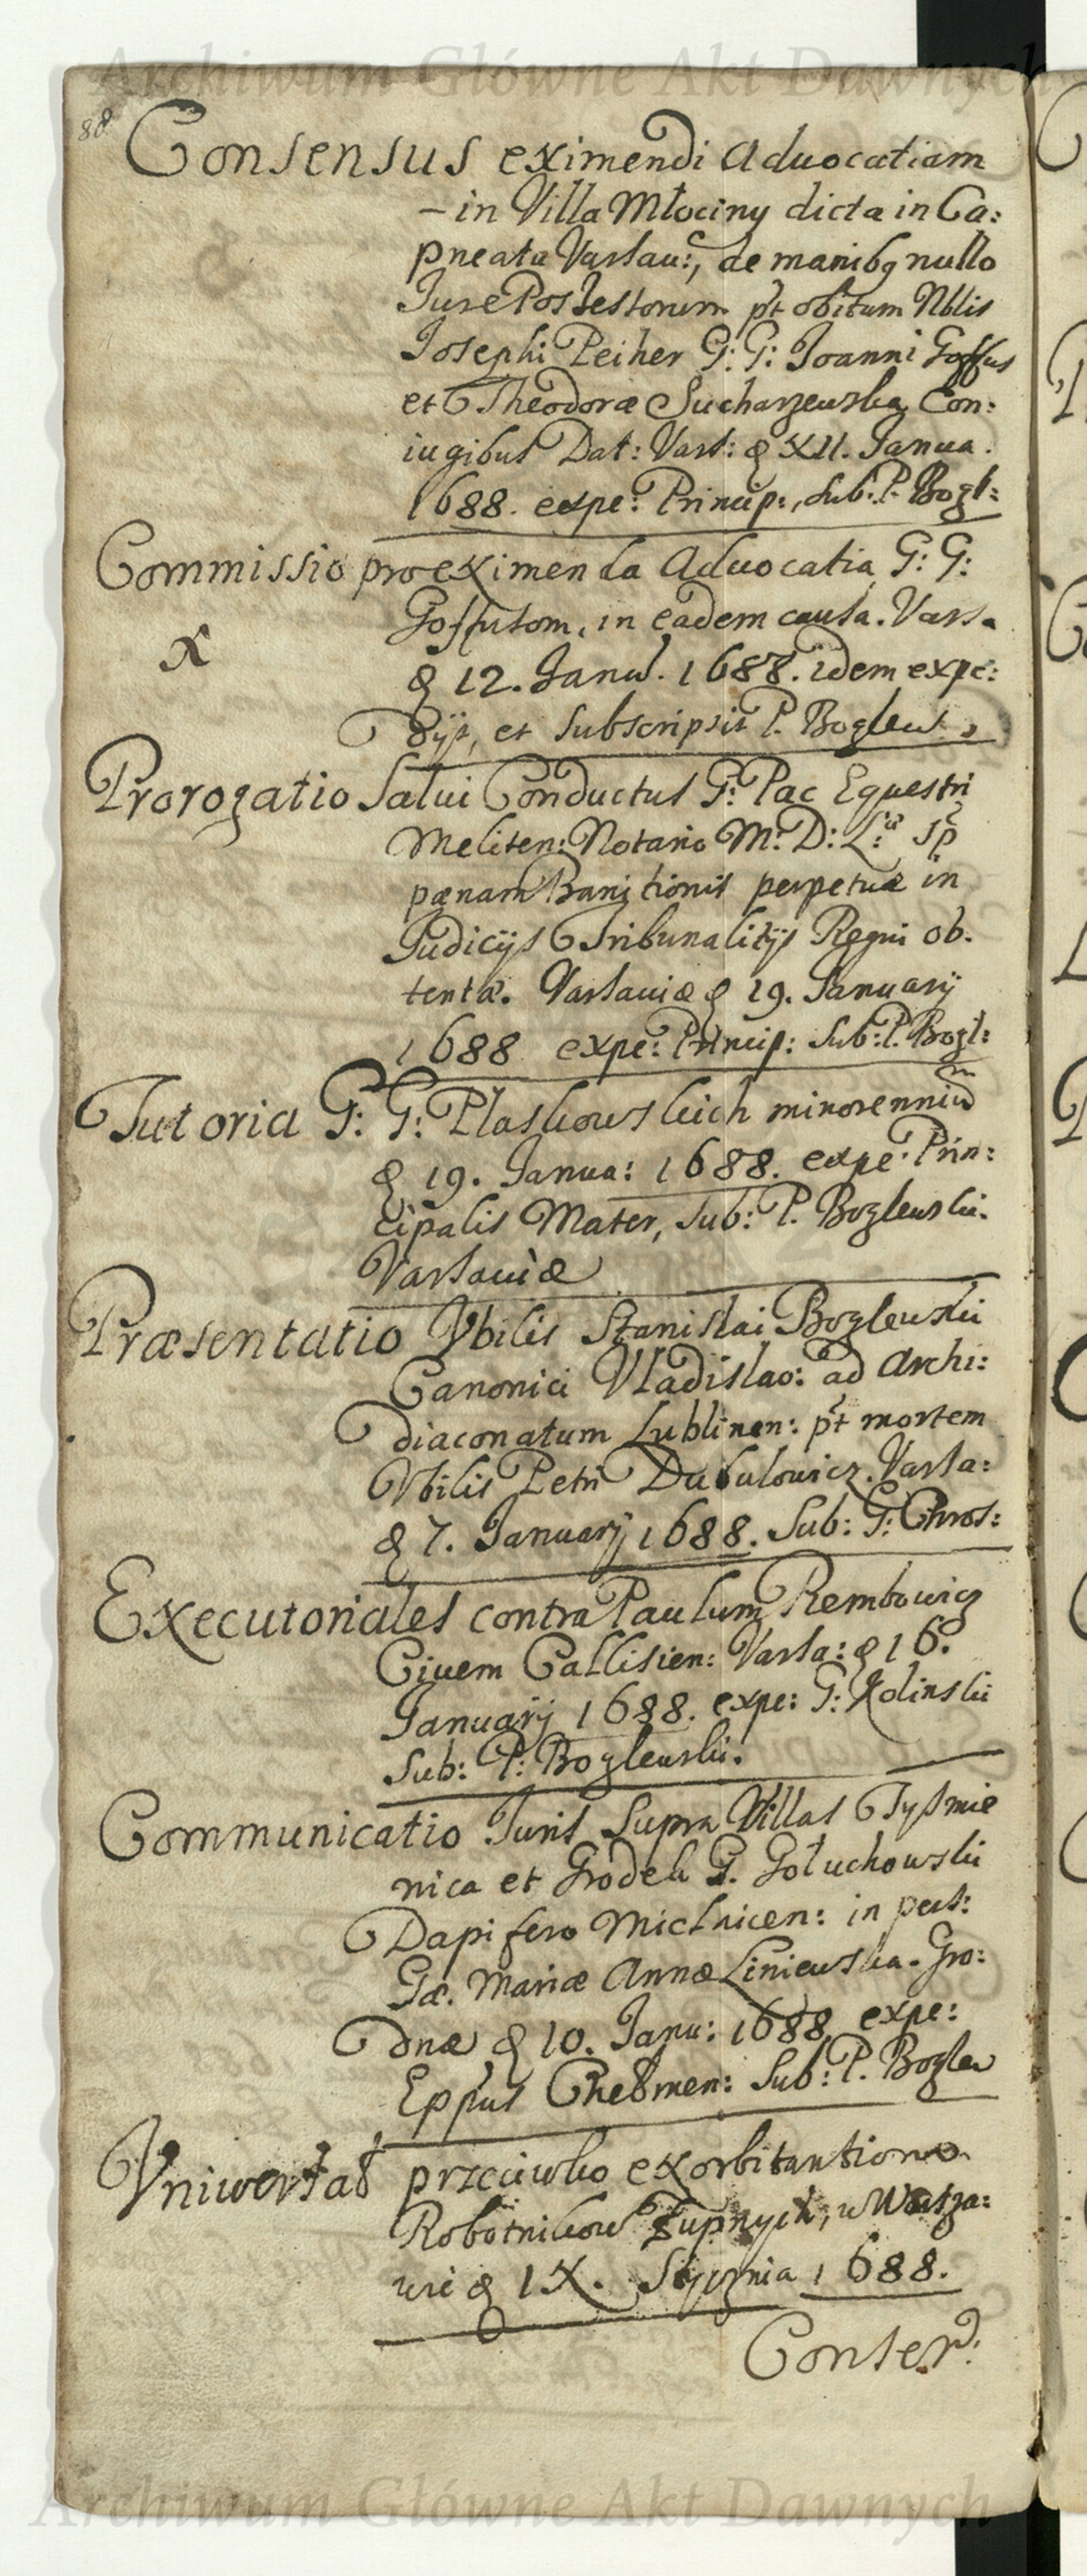 Archiwum Główne Akt Dawnych
88
Consensus eximendi Aduocatiam
in Villa Młociny dicta in Ca:
pneatu Varsau:, de manibq nullo
Iure Possessorum pt obitum Nblis
Josephi Peiher G: G: Joanni
et Theodoræ Sucharzewska Con:
iugibus Dat: Vars: d XII. Janua.
1688. expe: Princip:, sub: P. Bogl:
Commissio pro eximenda Aduocatia G: G:
in eadem causa. Varsa
x
d 12. Janu. 1688. idem expe:
dijt, et subscripsit P. Boglews.
Prorogatio Salui Conductus G: Pac Equestri
Meliten: Notario M: D: L:
pænam Banitionis perpetuæ in
Judicijs Tribunalitijs Regni ob.
tentæ. Varsauiæ d 19. Januarij
1688 expe: Princip: Sub: P. Bogl:
Tutoria G: G: Plaskowskich minorennium
d 19. Janua: 1688. expe. Prin:
cipalis Mater, sub: P. Boglewski.
Varsauiæ
Præsentatio Vbilis Stanislai Boglewski
Canonici Vladislao: ad Archi:
diaconatum Lublinen: pt mortem
Vbilis Petri Varsa:
d 7. Januarij 1688. Sub: G: Chros:
Executoriales contra Paulum Rembowicz
Ciuem Callisien: Varsa: d 16.
Januarij 1688. expe: G: Kolinski
Sub: P: Boglewski.
Communicatio Juris supra Villas Tyśmie
nica et Grodek G. Gołuchowski
Dapifero Mielnicen: in pers:
Gæ. Mariæ Annæ Liniewska. Gro:
dnæ d 10. Janu: 1688 expe:
Eppus Chełmen: Sub: P. Boglew
Vniwersał przeciwko exorbitantiom
Robotnikow Żupnych, w Warsza:
wie d IX. Stycznia 1688.
Conser:
Archiwum Główne Akt Dawnych